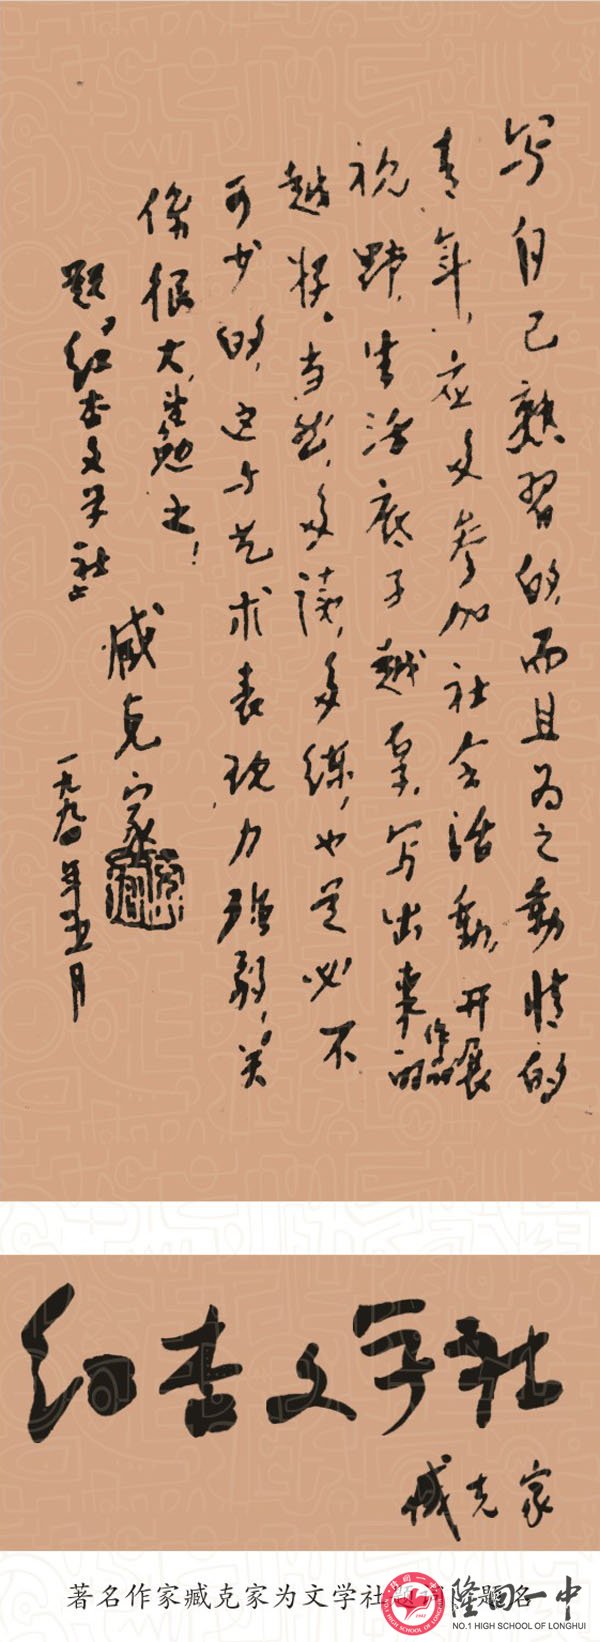 写自己熟习的,而且为之动情的
青年,应多参加社会活动,开展
视野,生活底子越厚,写出来的作品
越好。当然,多读,多练,也是必不
可少的,这与艺术表现力强弱,关
系很大,望勉之!
题《红杏文学社》
臧克家
一九九〇年五月
红杏文学社
臧克家
著名作家臧克家为文学社题名
隆回一中
NO.1 HIGH SCHOOL OF LONGHUI